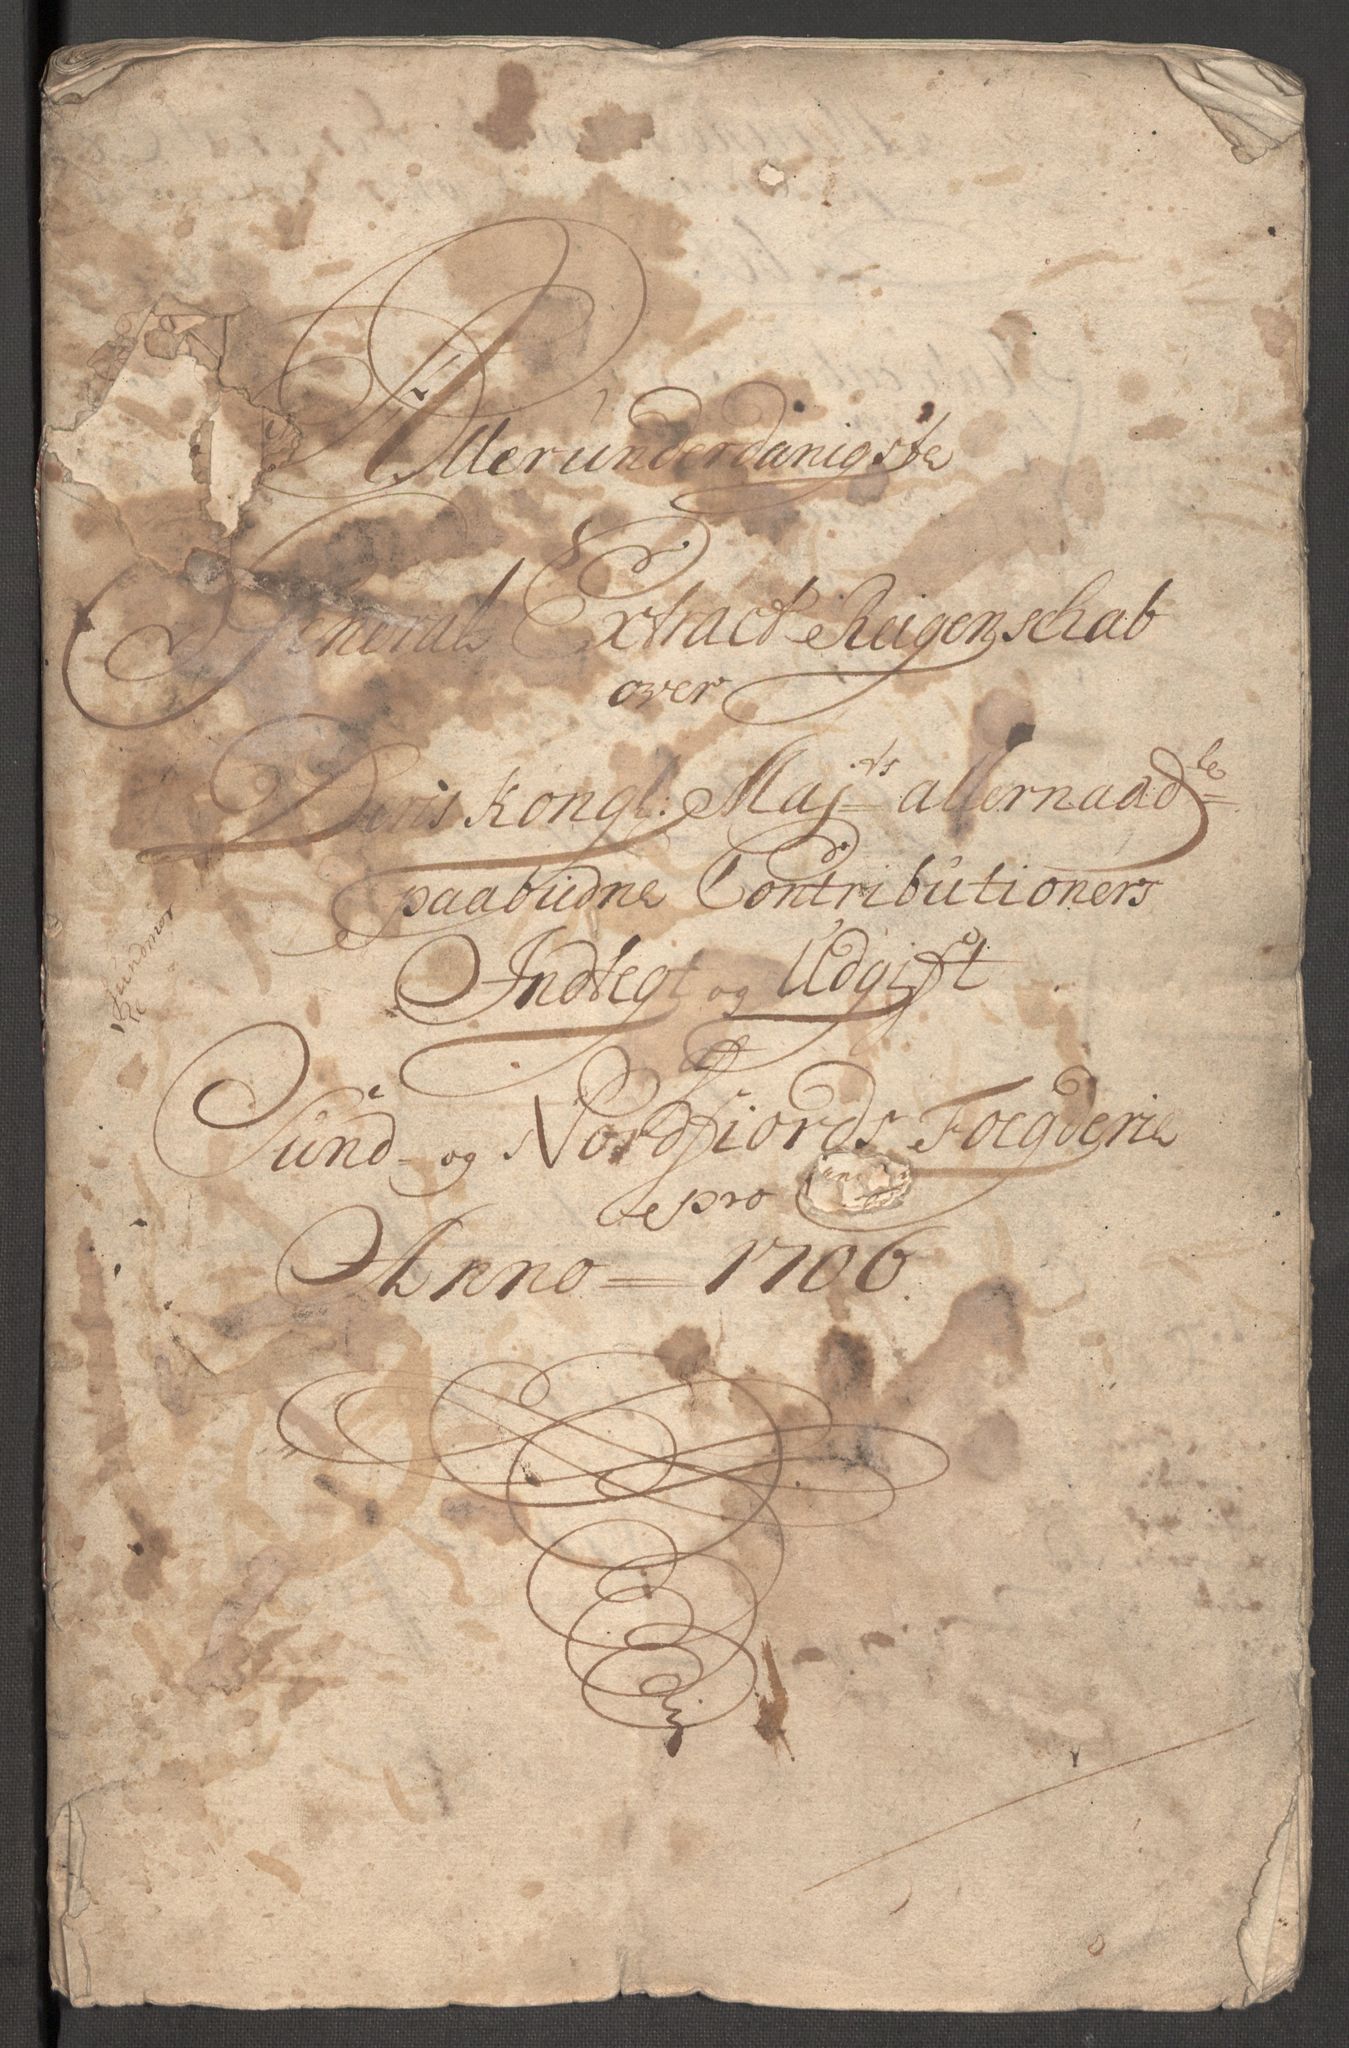 Allerunderdanigste
General Extract Reigenschab
over
Deris Kongl: Maj.ts allernaad.te
paabudne Contributioners
Indtegt og Udgift
af
Sund- og Nordfiords Foegderie
pro
Anno = 1706.